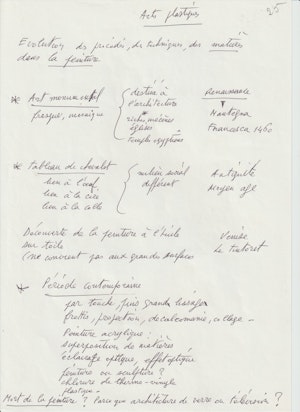 Arts plastiques
25
Evolution des procédés, des techniques, des matières
dans la peinture
* Art monumental
fresque, mosaïque
destiné à
l'architecture
églises
temples égyptiens
Renaissance
Mantegna
Francesca 1460
* Tableau de chevalet
lien à l'œuf
lien à la cire
lien à la colle
milieu social
différent
Antiquité
Moyen age
Découverte de la peinture à l'huile
sur toile
(ne convient pas aux grandes surfaces
Venise
Le Tintoret
* Période contemporaine
par touche, puis grands
frottis, projection, décalcomanie, collage -
Peinture acrylique :
superposition de matières
éclairage optique, effet optique
peinture ou sculpture ?
chlorure de thermo-vinyle
plastique -
Mort de la peinture ? Parce que architecture de verre ou télévision ?